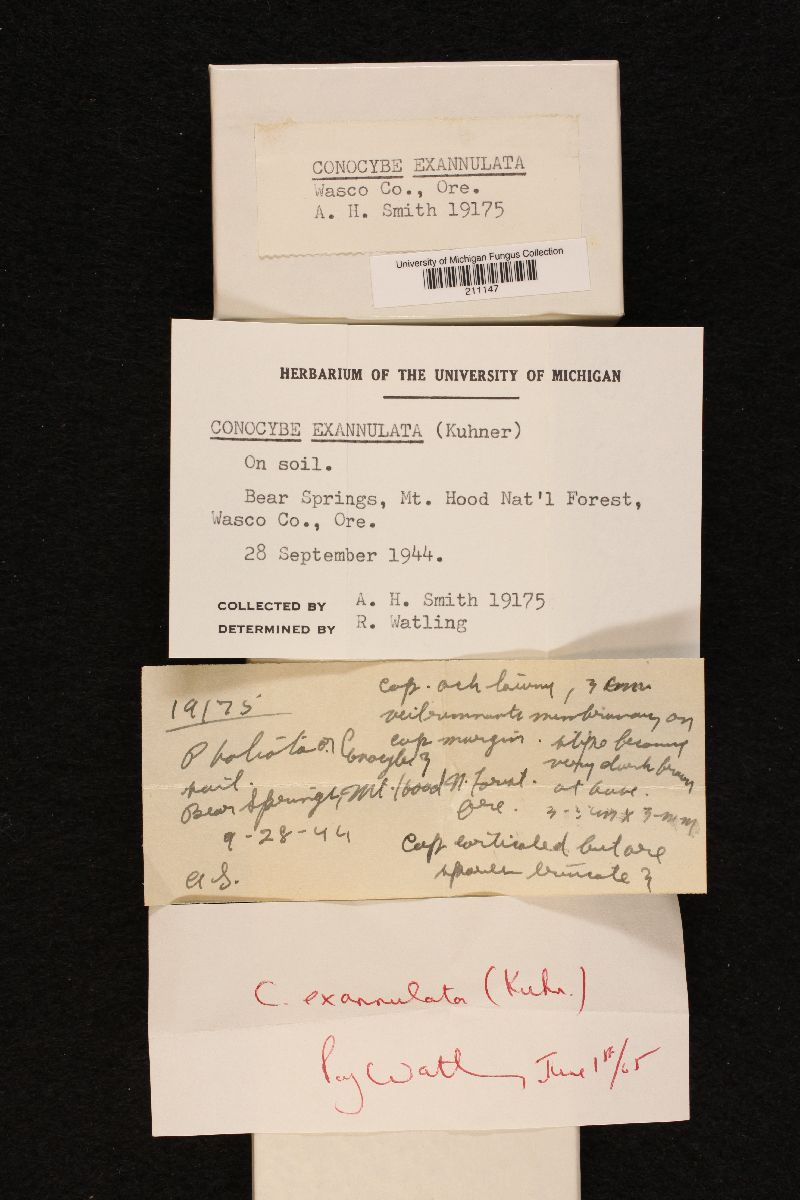 CONOCYBE EXANNULATA
Wasco Co., Ore.
A. H. Smith 19175
University of Michigan Fungus Collection
211147
HERBARIUM OF THE UNIVERSITY OF MICHIGAN
CONOCYBE EXANNULATA (Kuhner)
On soil.
Bear Springs, Mt. Hood Nat'l Forest,
Wasco Co., Ore.
28 September 1944.
COLLECTED BY A. H. Smith 19175
DETERMINED BY R. Watling
19175
Pholiota or Conocybe?
soil.
Bear Springs, Mt. Hood N. Forest.
Ore.
9-28-44
a S.
cap. och tawny, 3 cm
veil remnants membranous on
cap margin. stipe becoming
very dark brown
at base.
Cap corticated but are
spores truncate ?
C. exannulata (Kuhn.)
Roy Watling June 1st/65